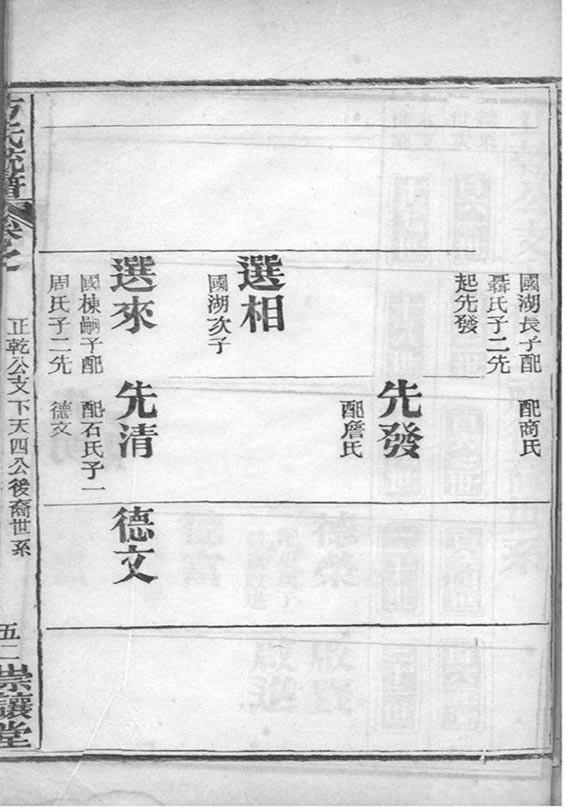 國湖長子配
聶氏子二先
起先發
配商氏
先發
配詹氏
選相
國湖次子
選來
國棟嗣子配
周氏子二先
先清
配石氏子一
德文
德文
方氏統譜
卷之
正乾公支下天四公後裔世系
五二
崇讓堂